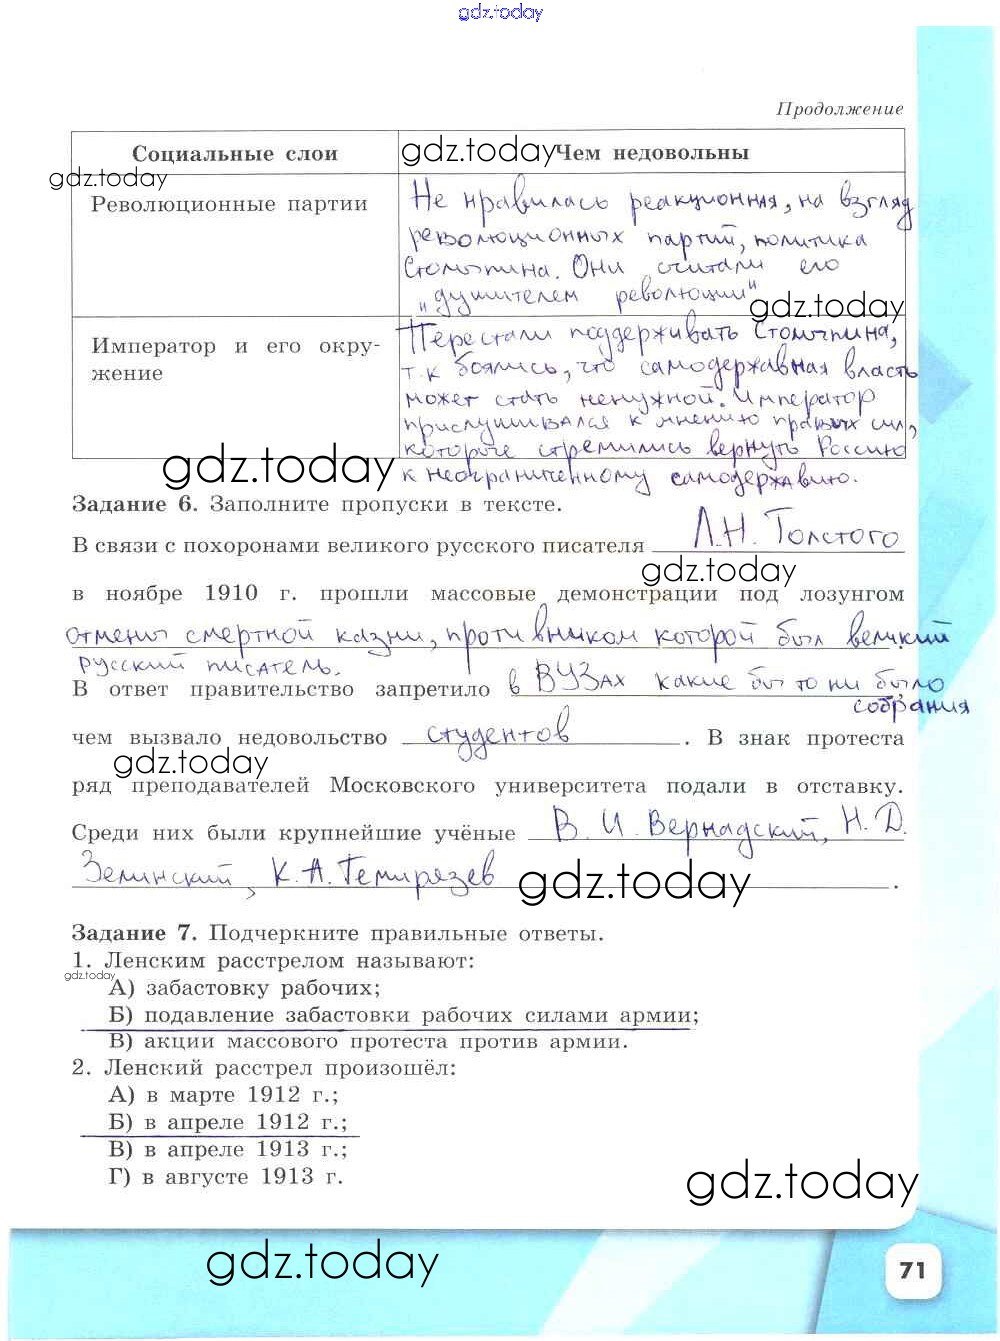 gdz.today
Продолжение
Социальные слои
gdz.today
Чем недовольны
gdz.today
Революционные партии
Не нравилась реакционная, на взгляд
революционных партий, политика
Столыпина. Они считали его
„душителем революции"
gdz.today
Император и его окру-
жение
Перестали поддерживать Столыпина,
т.к боялись, что самодержавная власть
может стать ненужной. Император
прислушивался к мнению правых сил,
которые стремились вернуть Россию
к неограниченному самодержавию.
gdz.today
Задание 6. Заполните пропуски в тексте.
В связи с похоронами великого русского писателя Л.Н. Толстого
gdz.today
в ноябре 1910 г. прошли массовые демонстрации под лозунгом
отмены смертной казни, противником которой был великий
русский писатель.
В ответ правительство запретило в ВУЗах какие бы то ни было
собрания
чем вызвало недовольство студентов. В знак протеста
gdz.today
ряд преподавателей Московского университета подали в отставку.
Среди них были крупнейшие учёные В. И. Вернадский, Н. Д.
Зелинский, К. А. Темирязев.
gdz.today
Задание 7. Подчеркните правильные ответы.
1. Ленским расстрелом называют:
gdz.today
А) забастовку рабочих;
Б) подавление забастовки рабочих силами армии;
В) акции массового протеста против армии.
2. Ленский расстрел произошёл:
А) в марте 1912 г.;
Б) в апреле 1912 г.;
В) в апреле 1913 г.;
Г) в августе 1913 г.
gdz.today
gdz.today
71